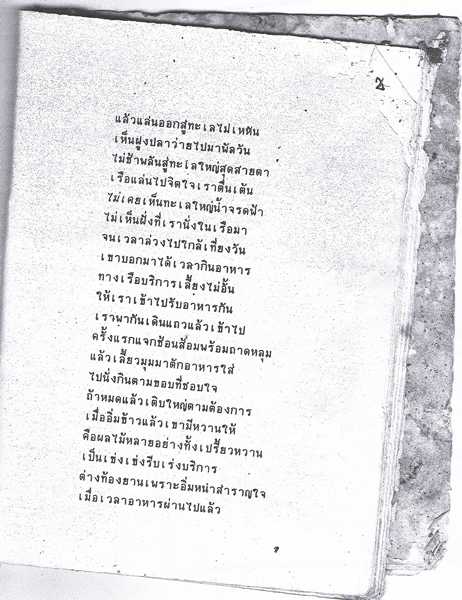 แล้วแล่นออกสู่ทะเลไม่เหหัน
เห็นฝูงปลาว่ายไปมาพัลวัน
ไม่ช้าพลันสู่ทะเลใหญ่สุดสายตา
เรือแล่นไปจิตใจเราตื่นเต้น
ไม่เคยเห็นทะเลใหญ่น้ำจรดฟ้า
ไม่เห็นฝั่งที่เรานั่งในเรือมา
จนเวลาล่วงไปใกล้เที่ยงวัน
เขาบอกมาได้เวลากินอาหาร
ทางเรือบริการเลี้ยงไม่อั้น
ให้เราเข้าไปรับอาหารกัน
เราพากันเดินแถวแล้วเข้าไป
ครั้งแรกแจกช้อนส้อมพร้อมถาดหลุม
แล้วเลี้ยวมุมมาตักอาหารใส่
ไปนั่งกินตามขอบที่ชอบใจ
ถ้าหมดแล้วเติบใหญ่ตามต้องการ
เมื่ออิ่มข้าวแล้วเขามีหวานให้
คือผลไม้หลายอย่างทั้งเปรี้ยวหวาน
เป็นเข่งเข่งรีบเร่งบริการ
ต่างท้องยานเพราะอิ่มหนำสำราญใจ
เมื่อเวลาอาหารผ่านไปแล้ว